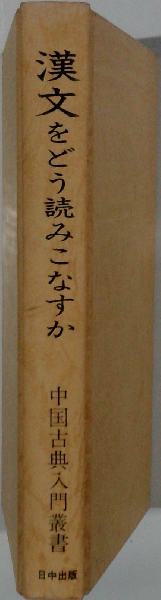 漢文をどう読みこなすか
中国古典入門叢書
日中出版